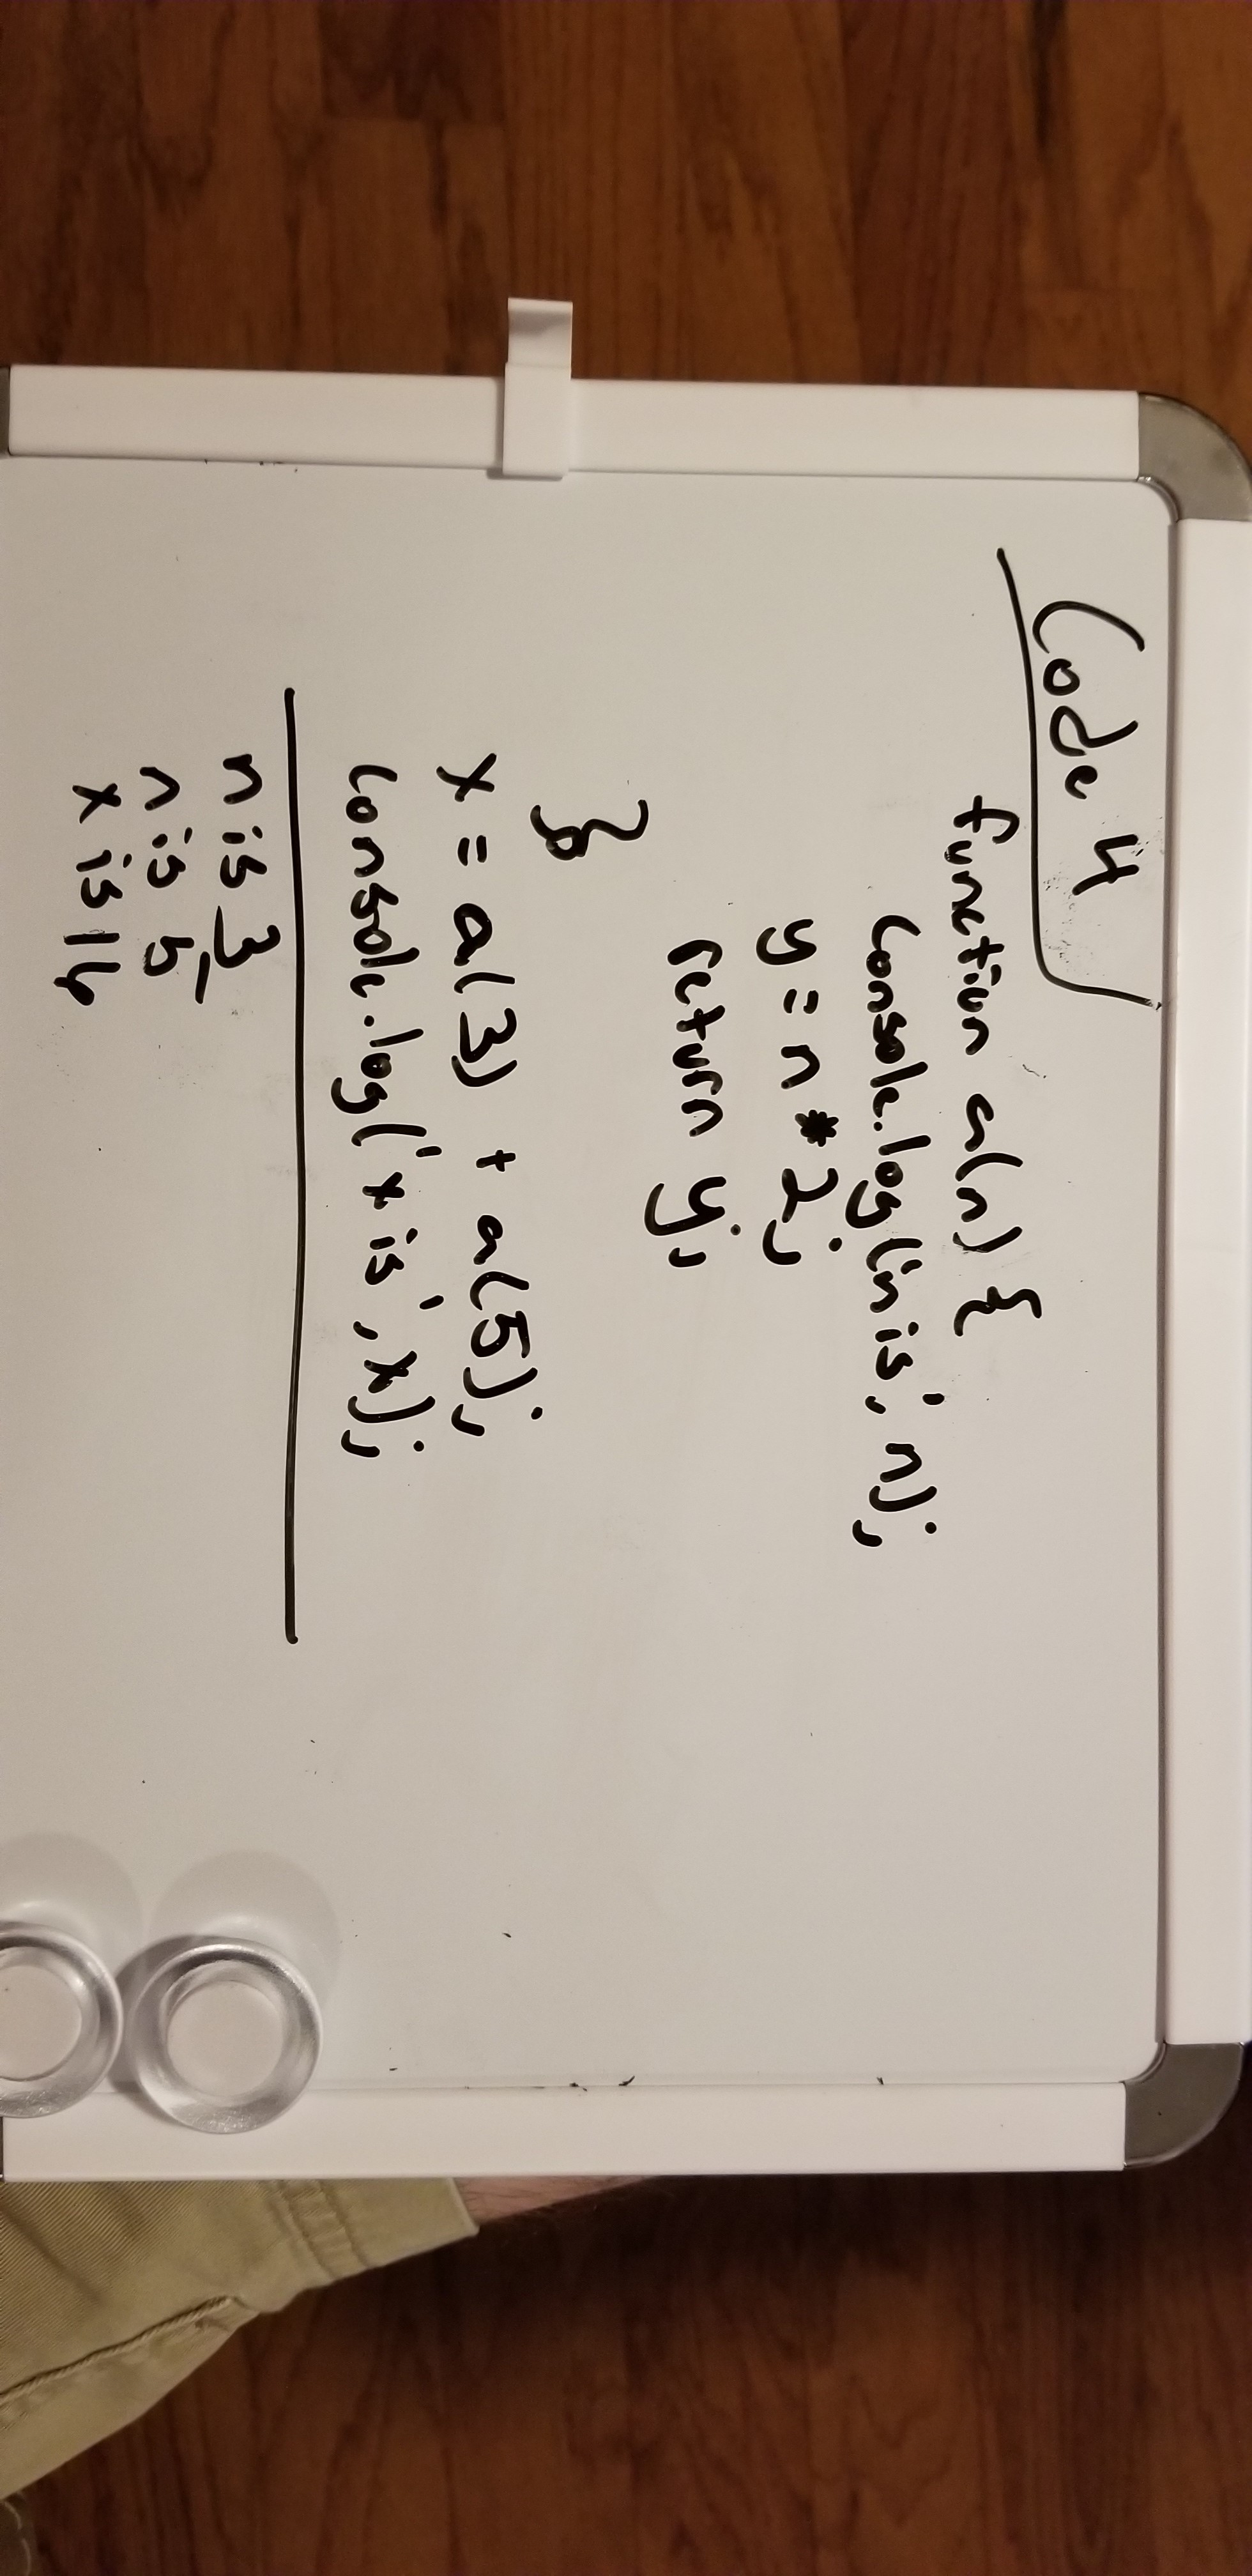 Code 4
function a(n) {
console.log('n is', n);
y = n * 2;
return y;
}
x = a(3) + a(5);
console.log('x is', x);
n is 3
n is 5
x is 16